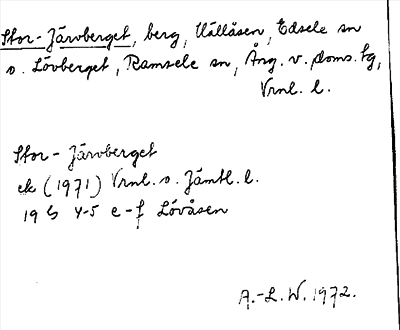 Stor-Järvberget, berg, Uållåsen, Edsele sn
o. Lövberget, Ramsele sn, Ång. v. doms. fg,
Vrnl. l.
Stor-Järvberget
ek (1971) Vrnl. o. Jämtl. l.
19 G 4-5 e-f Lövåsen
A.-L. W. 1972.